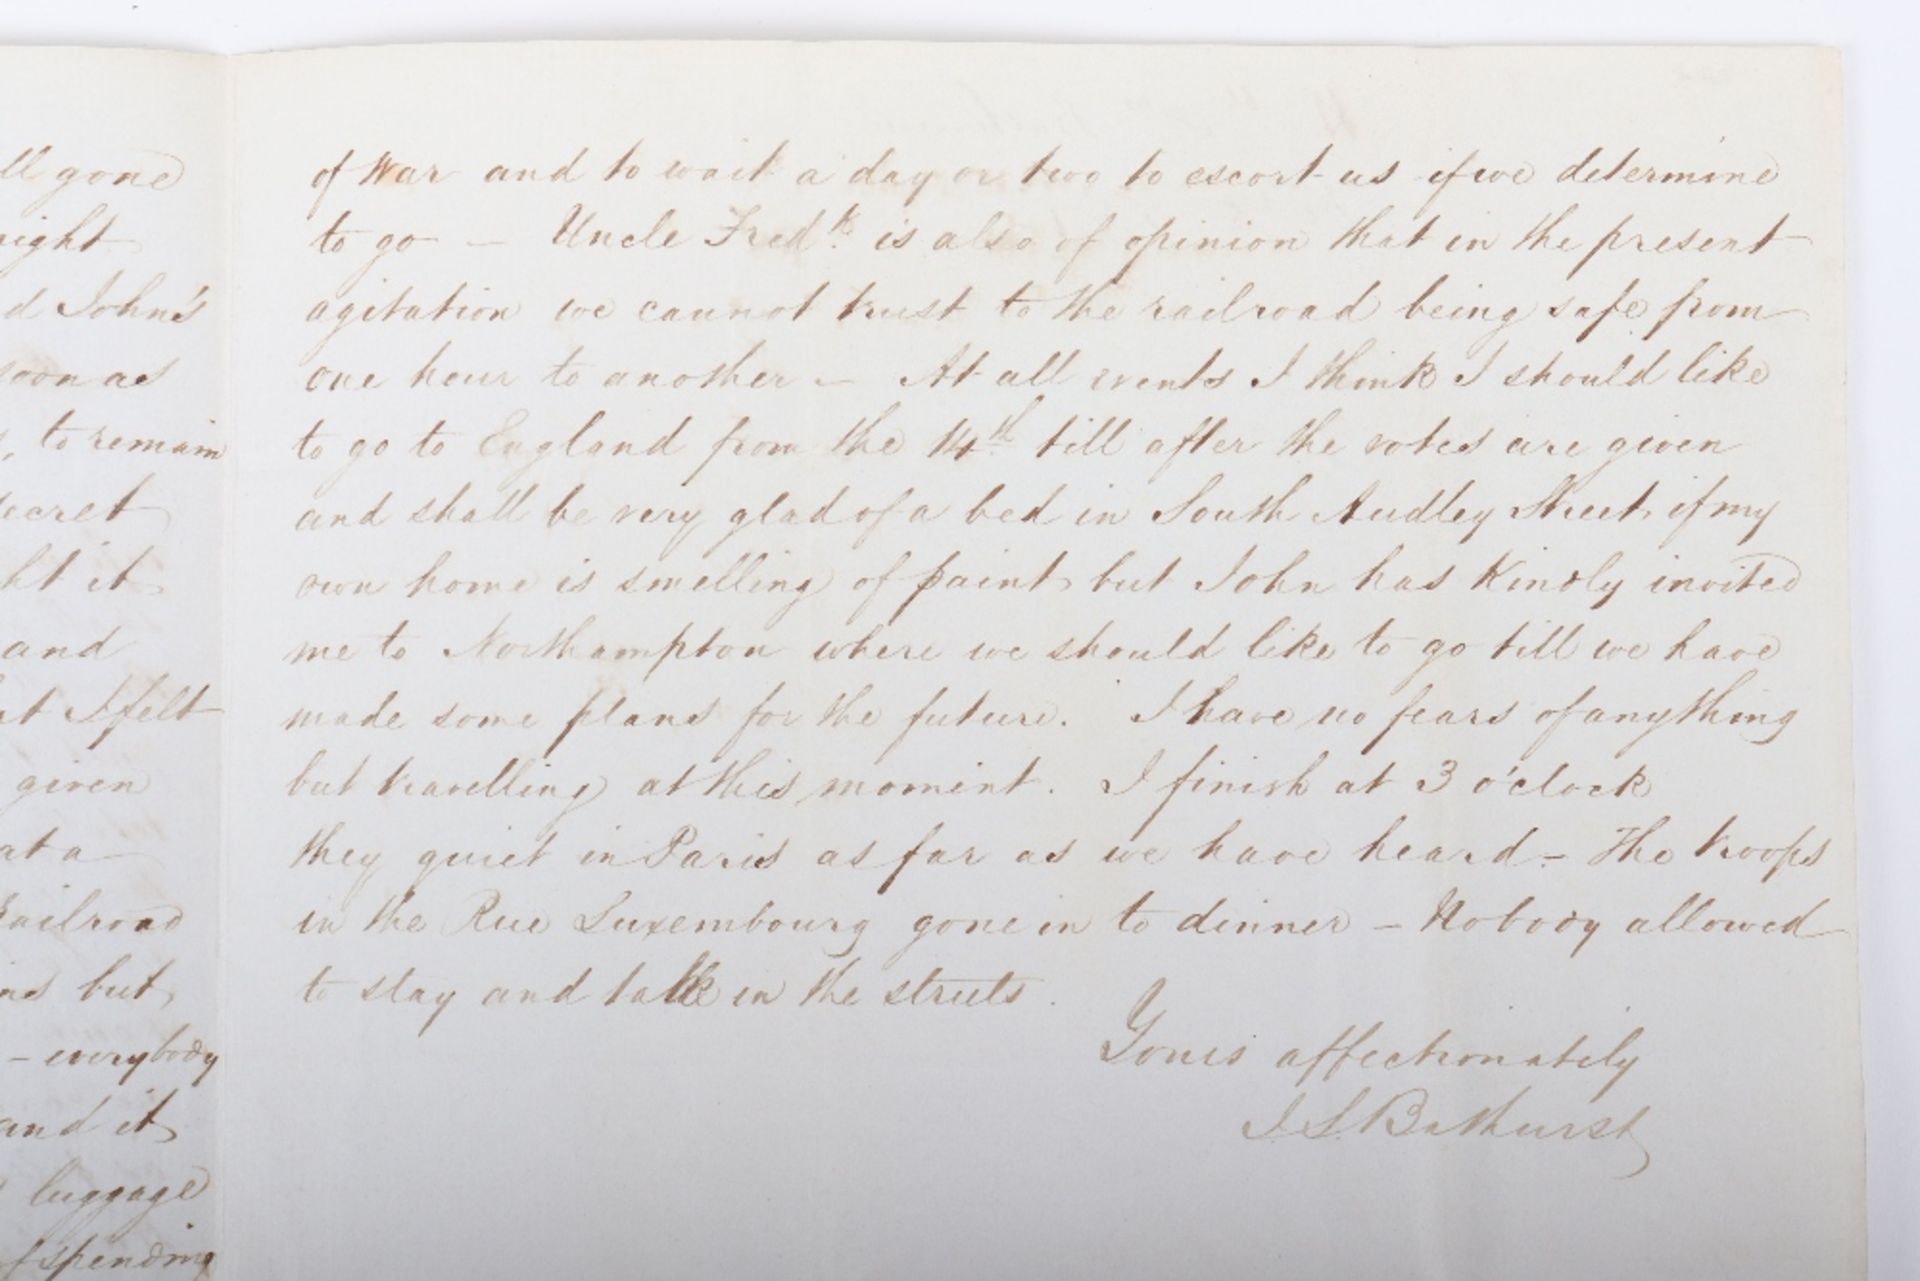 ll gone
night
d John's
soon as
, to remain
secret
ht it
and
t I felt
given
at a
Railroad
but
- everybody
and it
luggage
of spending
of War and to wait a day or two to escort us if we determine
to go - Uncle Fred.k is also of opinion that in the present
agitation we cannot trust to the railroad being safe from
one hour to another - At all events I think I should like
to go to England from the 14th till after the votes are given
and shall be very glad of a bed in South Audley Street, if my
own home is smelling of paint, but John has kindly invited
me to Northampton where we should like to go till we have
made some plans for the future. I have no fears of anything
but travelling at this moment. I finish at 3 o'clock
they quiet in Paris as far as we have heard - The troops
in the Rue Luxembourg gone in to dinner - Nobody allowed
to stay and talk in the streets.
Yours affectionately
Bathurst